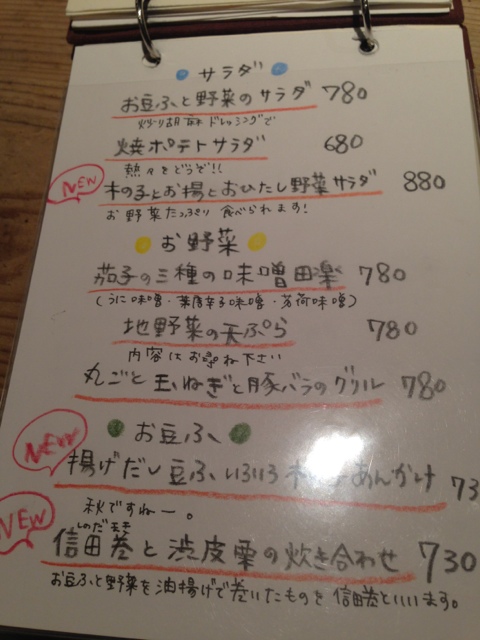 サラダ
お豆ふと野菜のサラダ 780
炒り胡麻ドレッシングで
焼ポテトサラダ 680
熱々をどうぞ!!
NEW
木の子とお揚とおひたし野菜サラダ 880
お野菜たっぷり食べられます!
お野菜
茄子の三種の味噌田楽 780
(うに味噌・葉唐辛子味噌・茗荷味噌)
地野菜の天ぷら 780
内容はお尋ね下さい
丸ごと玉ねぎと豚バラのグリル 780
お豆ふ
NEW
揚げだし豆ふいろいろ あんかけ 73
秋ですねー。
NEW
しのだまき
信田巻と渋皮栗の炊き合わせ 730
お豆ふと野菜を油揚げで巻いたものを信田巻といいます。